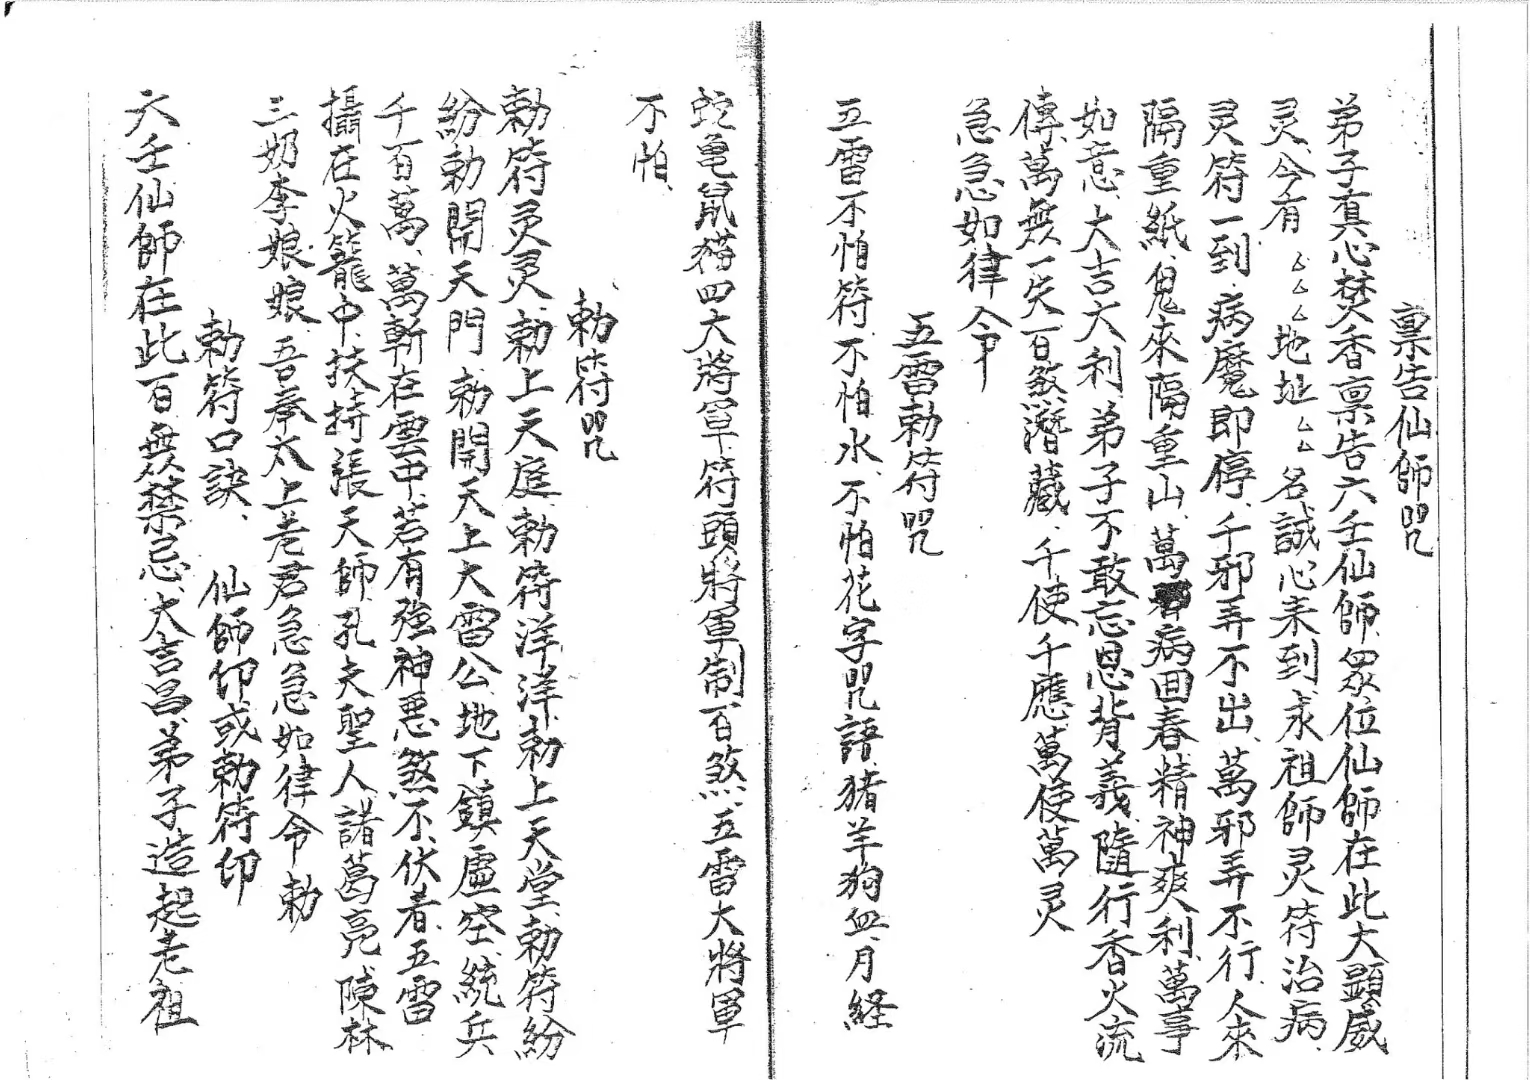 禀告仙師咒
弟子真心焚香禀告六壬仙師眾位仙師在此大顯威
灵、今有 厶厶厶地址厶厶名誠心来到、求祖師灵符治病、
灵符一到、病魔即停、千邪弄不出、萬邪弄不行、人來
隔重紙、鬼來隔重山、萬病回春、精神爽利、萬事
如意、大吉大利、弟子不敢忘恩背義、隨行香火流
傳、萬無一失、百煞潛藏、千使千應、萬使萬灵
急急如律令
五雷勅符咒
五雷不怕符、不怕水、不怕花字咒語、猪羊狗血、月経
蛇龟鼠猫四大將軍、符頭將軍制百煞、五雷大將軍
不怕、
勅符咒
勅符灵灵、勅上天庭、勅符洋洋、勅上天堂、勅符紛
紛、勅開天門、勅開天上大雷公、地下鎮虛空、統兵
千百萬、萬斬在雲中、若有強神惡煞不伏者、五雷
攝在火籠中、扶持張天師、孔夫聖人諸葛亮、陳林
三奶李娘娘、吾奉太上老君急急如律令勅
勅符口訣、 仙師印或勅符印
六壬仙師在此百無禁忌、大吉昌、弟子造起老祖